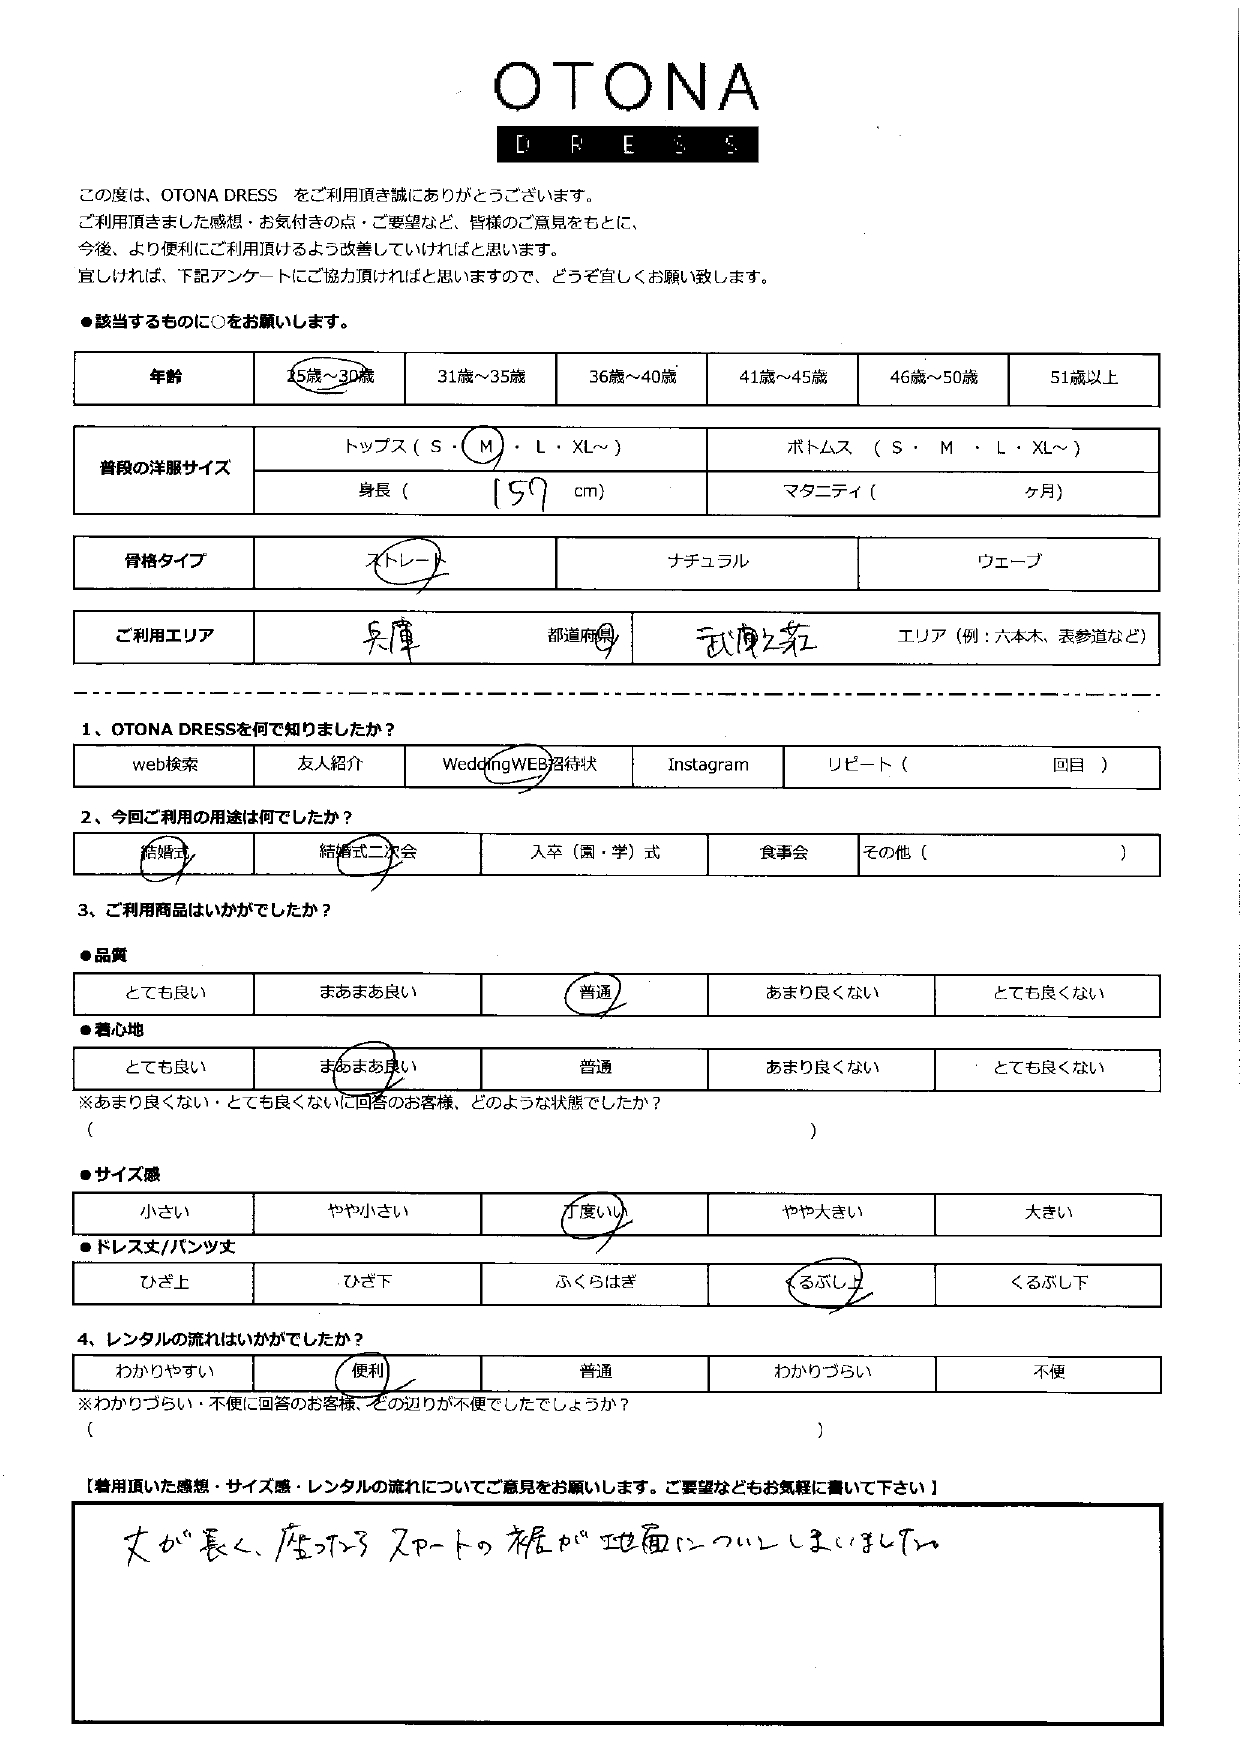 OTONA
DRESS
この度は、OTONA DRESS　をご利用頂き誠にありがとうございます。
ご利用頂きました感想・お気付きの点・ご要望など、皆様のご意見をもとに、
今後、より便利にご利用頂けるよう改善していければと思います。
宜しければ、下記アンケートにご協力頂ければと思いますので、どうぞ宜しくお願い致します。
●該当するものに○をお願いします。
年齢 25歳～30歳 31歳～35歳 36歳～40歳 41歳～45歳 46歳～50歳 51歳以上
普段の洋服サイズ トップス ( S ・ M ・ L ・ XL～ ) ボトムス ( S ・ M ・ L ・ XL～ )
身長 ( 157 cm) マタニティ ( ヶ月)
骨格タイプ ストレート ナチュラル ウェーブ
ご利用エリア 兵庫 都道府県 武庫之荘 エリア（例：六本木、表参道など）
1、OTONA DRESSを何で知りましたか？
web検索 友人紹介 WeddingWEB招待状 Instagram リピート ( 回目 )
2、今回ご利用の用途は何でしたか？
結婚式 結婚式二次会 入卒（園・学）式 食事会 その他 ( )
3、ご利用商品はいかがでしたか？
●品質
とても良い まあまあ良い 普通 あまり良くない とても良くない
●着心地
とても良い まあまあ良い 普通 あまり良くない とても良くない
※あまり良くない・とても良くないに回答のお客様、どのような状態でしたか？
( )
●サイズ感
小さい やや小さい 丁度いい やや大きい 大きい
●ドレス丈/パンツ丈
ひざ上 ひざ下 ふくらはぎ くるぶし上 くるぶし下
4、レンタルの流れはいかがでしたか？
わかりやすい 便利 普通 わかりづらい 不便
※わかりづらい・不便に回答のお客様、どの辺りが不便でしたでしょうか？
( )
【着用頂いた感想・サイズ感・レンタルの流れについてご意見をお願いします。ご要望などもお気軽に書いて下さい】
丈が長く、座ったらスカートの裾が地面についてしまいました。